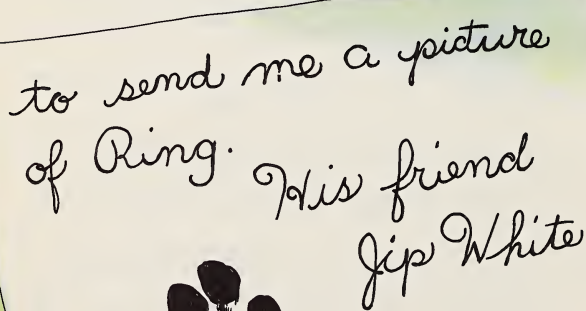 to send me a picture
of Ring.
His friend
Jip White